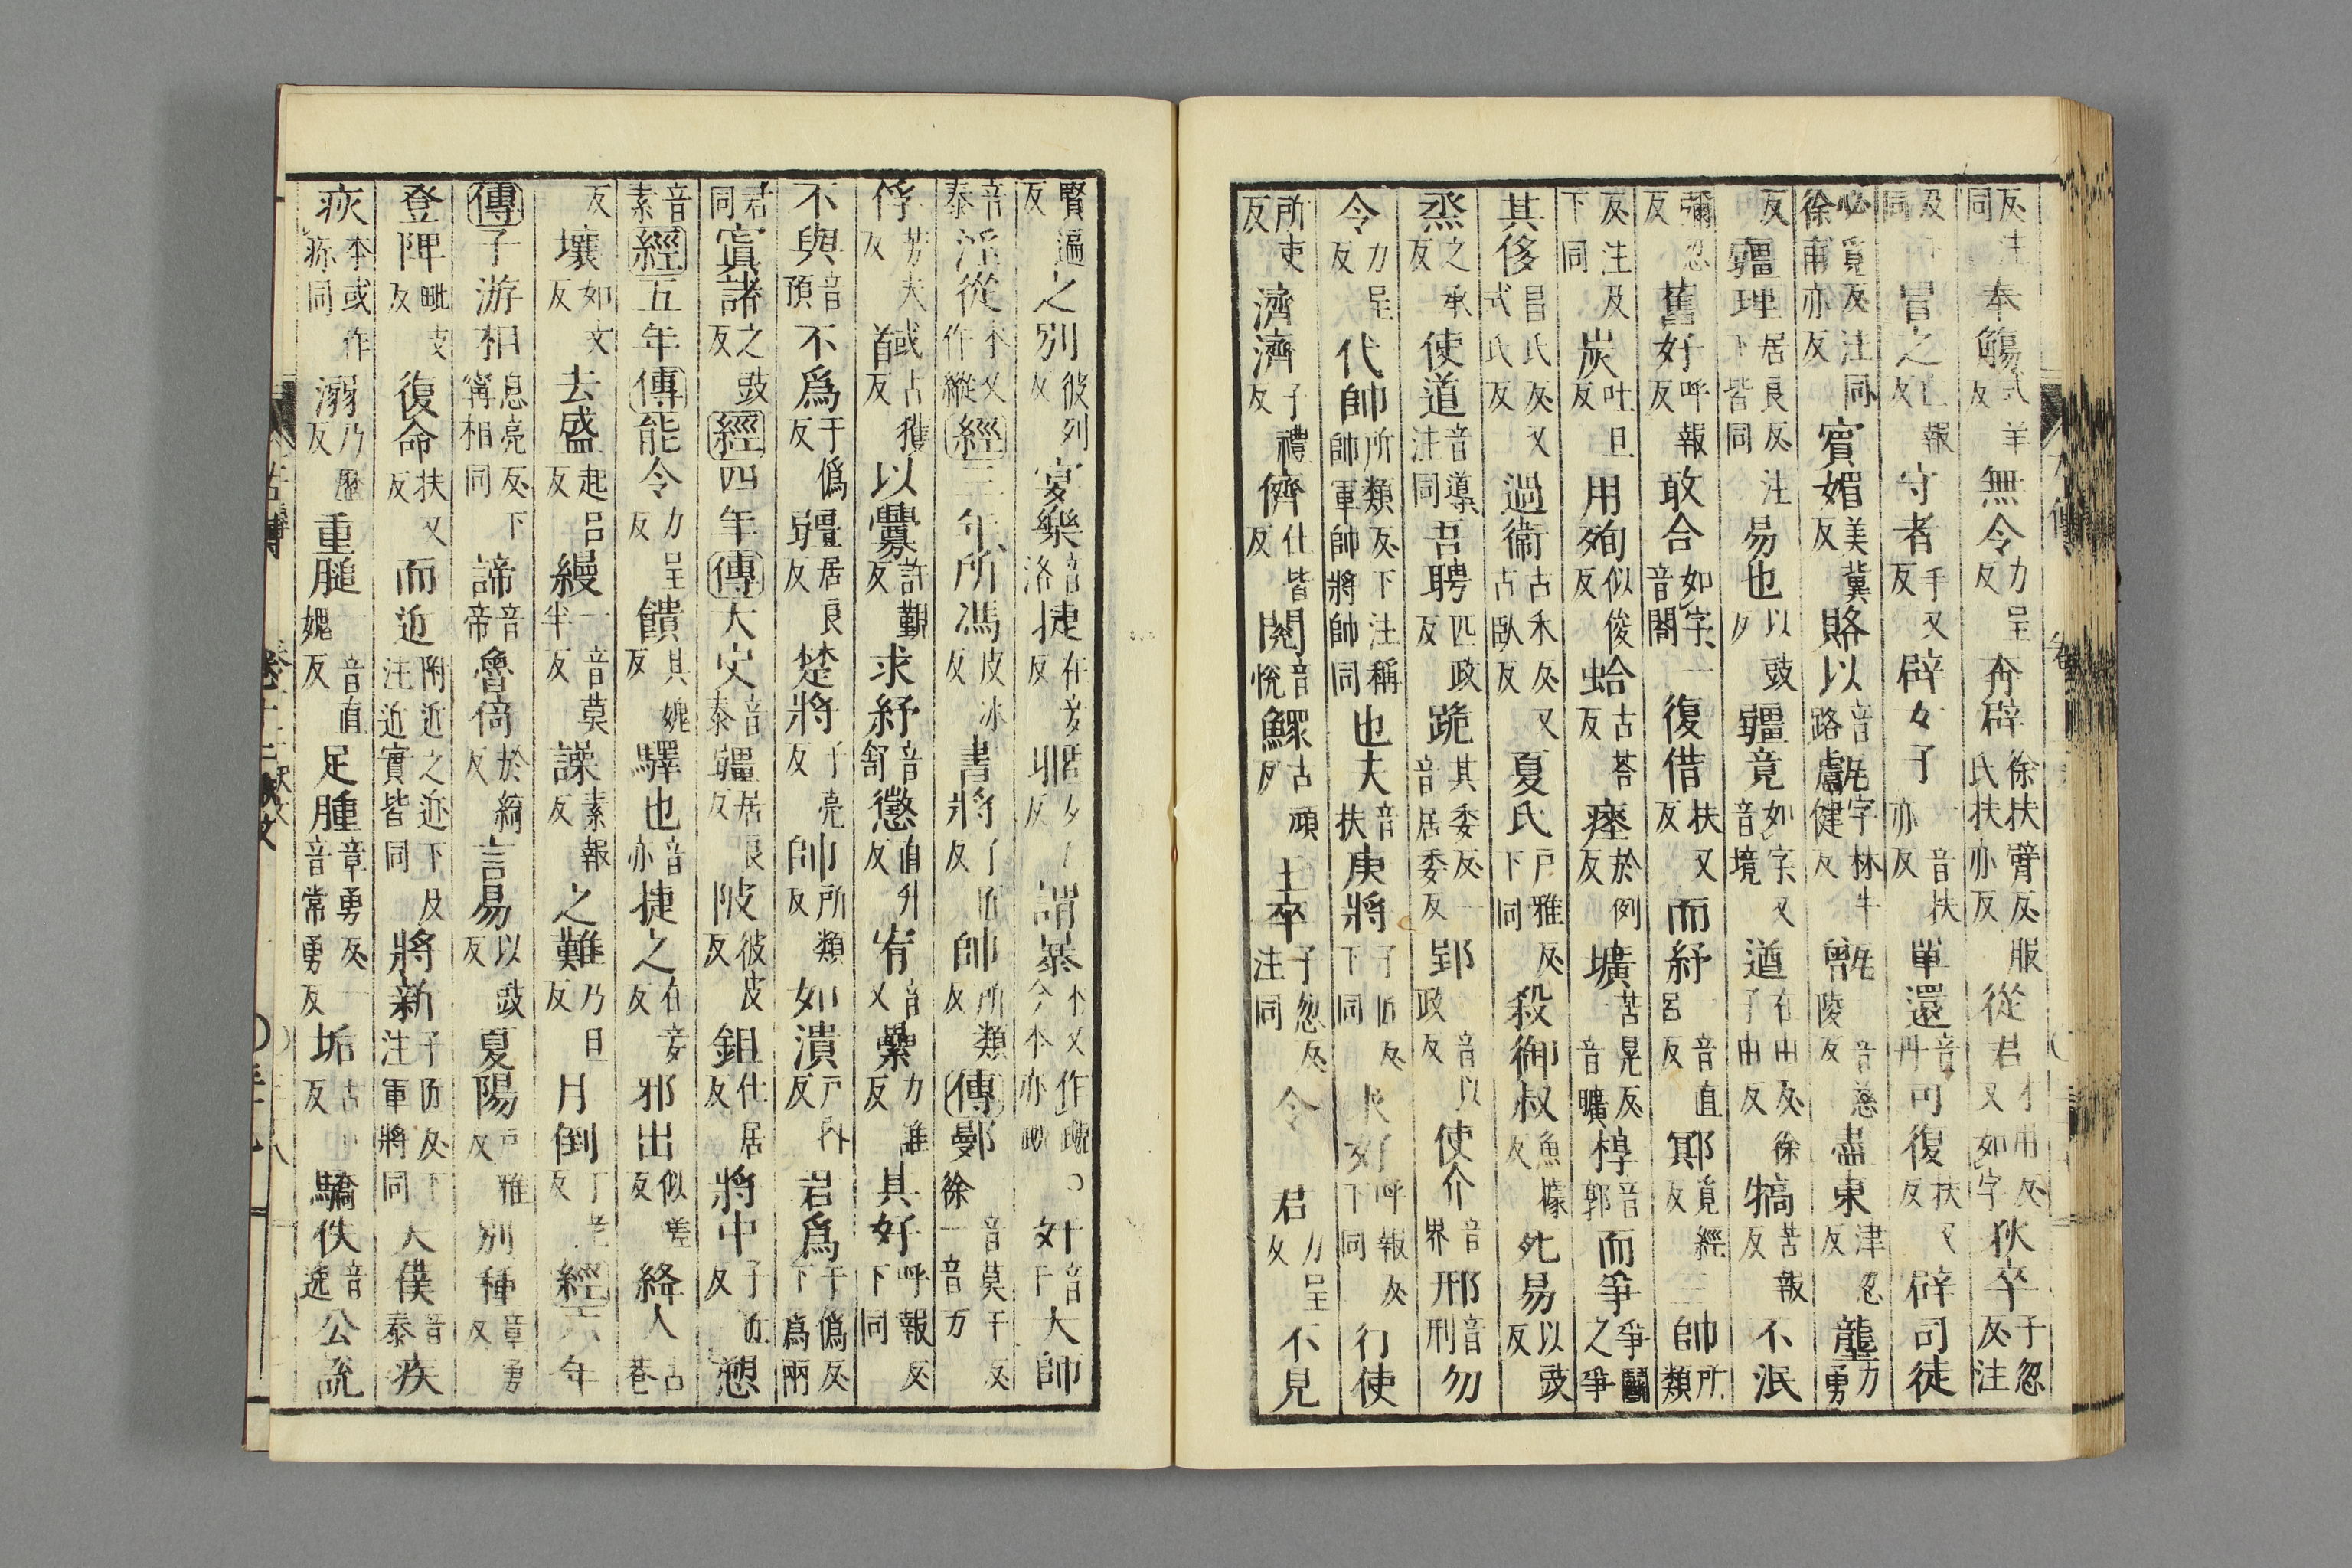 反注同奉觴式羊反無令力呈反奔辟徐扶臂反服氏扶亦反從君才用反又如字狄卒子忽反注
及下同冒之亡報反守者手又反辟女子音扶亦反單還音丹可復扶又反辟司徒
必覓反注同徐甫亦反賓媚美冀反賂以音路甗魚字林牛健反甑音慈陵反盡東津忍反壟力勇
反疆理居良反注下皆同易也以豉反疆竟如字又音境遒在由反徐子由反犒苦報反不泯
彌忍反舊好呼報反敢合如字一音閤復借扶又反而紓音直呂反鄍覓經反三帥所類
反注及下同炭吐旦反用殉似俊反蛤古荅反瘞於例反壙苦晃反一音曠槨音郭而爭爭鬭之爭
其侈昌氏反又式氏反過衞古禾反又古臥反夏氏戶雅反下同殺御叔魚據反死易以豉反
烝之承反使道音導注同吾聘匹政反跪其委反一音居委反郢以政反使介音界邢音刑勿
令力呈反代帥所類反下注稱帥軍帥將帥同也夫音扶庚將子匠反下同大好呼報反下同行使
所吏反濟濟子禮反儕仕皆反閱音悅鰥古頑反王卒子忽反注同令君力呈反不見
賢遍反之別彼列反宴樂音洛捷在妾反謂暴本又作虣今本亦虣○奸音干大師
音泰淫從本又作縱經三年所馮皮冰反書將子匠反帥所類反傳鄤音莫干反徐一音万
俘芳夫反馘古獲反以釁許覲反求紓音舒懲直升反宥音又纍力誰反其好呼報反下同
不與音預不爲于僞反疆居良反楚將子亮反帥所類反如潰戶內反君爲于僞反下爲兩
君同寘諸之豉反經四年傳大史音泰疆居良反陂彼皮反鉏仕居反將中子匠反愬
音素經五年傳能令力呈反饋其媿反驛也音亦捷之在妾反邪出似嗟反絳人古巷
反壤如丈反去盛起呂反縵一音莫半反譟素報反之難乃旦反月倒丁老反經六年
傳子游相息亮反下甯相同諦音帝魯倚於綺反言易以豉反夏陽戶雅反別種章勇反
登陴毗支反復命扶又反而近附近之近下及注近實皆同將新子匠反下注軍將同大僕音泰疾
疢本或作疹同溺乃歷反重膇一音直媿反足腫章勇反一音常勇反垢古口反驕佚音逸公說